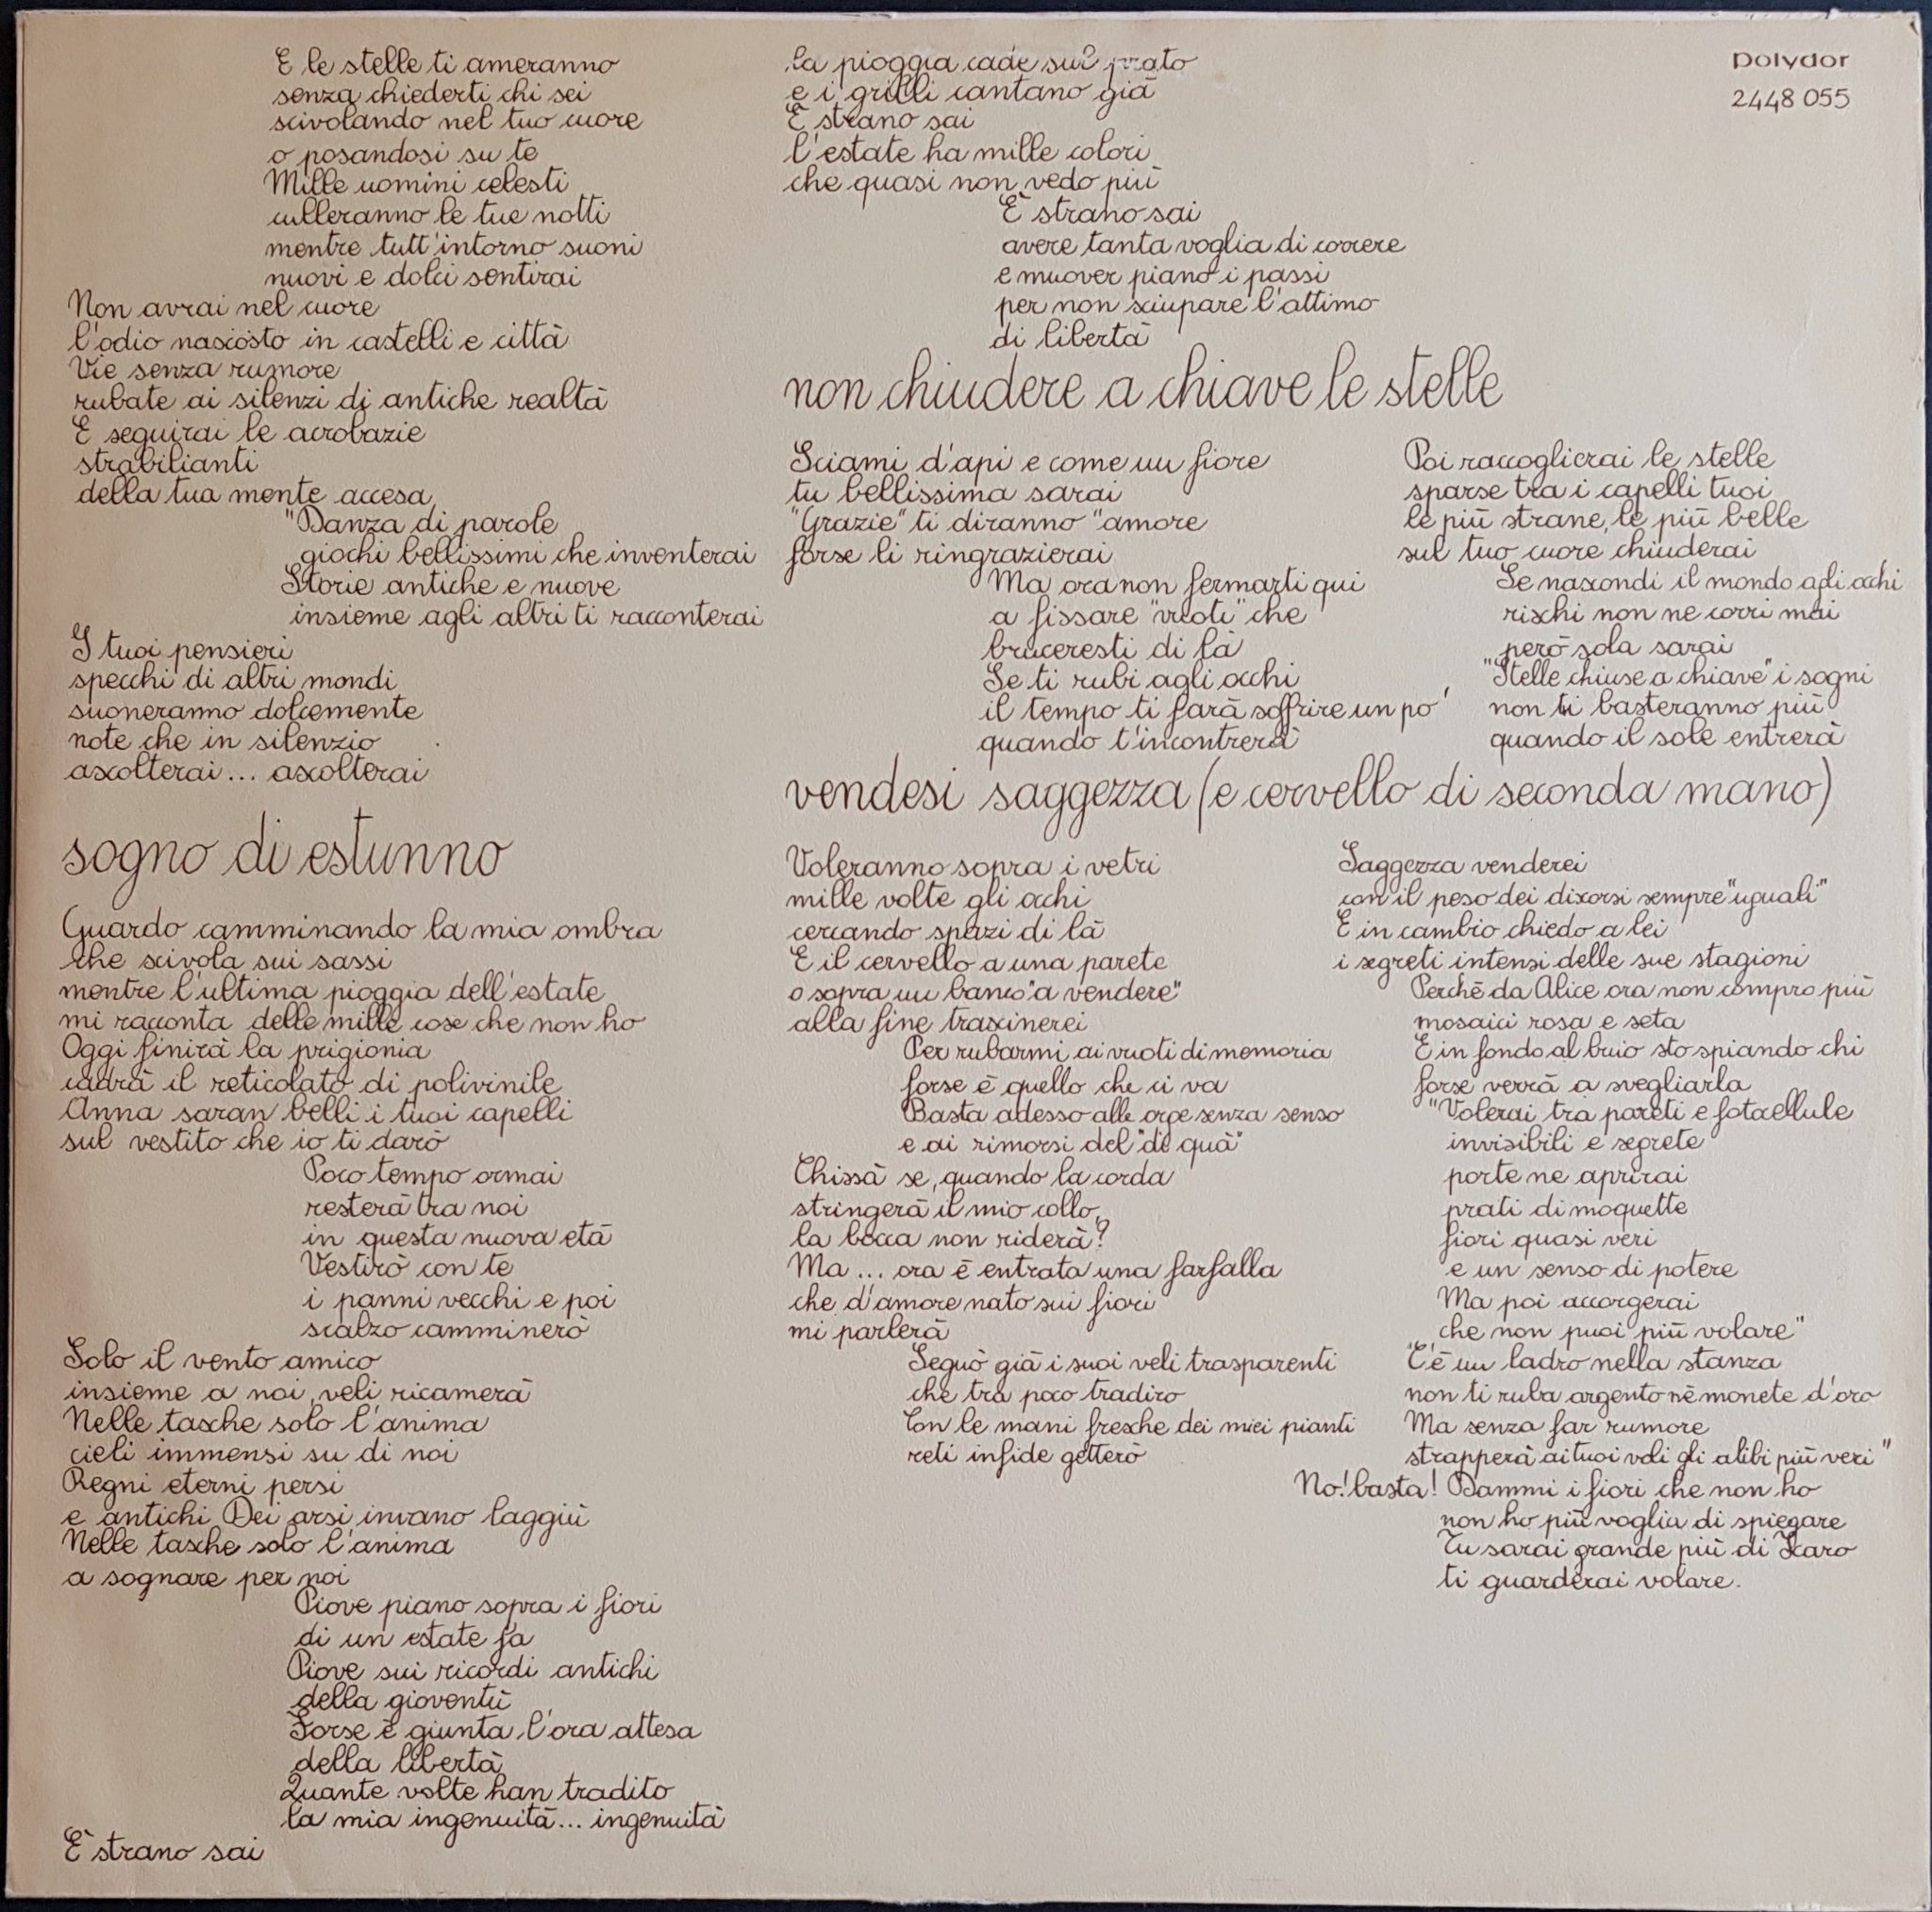 E le stelle ti ameranno
senza chiederti chi sei
scivolando nel tuo cuore
o posandosi su te
Mille uomini celesti
culleranno le tue notti
mentre tutt'intorno suoni
nuovi e dolci sentirai
Non avrai nel cuore
l'odio nascosto in castelli e città
Vie senza rumore
rubate ai silenzi di antiche realtà
E seguirai le acrobazie
strabilianti
della tua mente accesa
"Danza di parole
giochi bellissimi che inventerai
Storie antiche e nuove
insieme agli altri ti racconterai
I tuoi pensieri
specchi di altri mondi
suoneranno dolcemente
note che in silenzio
ascolterai... ascolterai
sogno di estunno
Guardo camminando la mia ombra
che scivola sui sassi
mentre l'ultima pioggia dell'estate
mi racconta delle mille cose che non ho
Oggi finirà la prigionia
cadrà il reticolato di polivinile
Anna saran belli i tuoi capelli
sul vestito che io ti darò
Poco tempo ormai
resterà tra noi
in questa nuova età
Vestirò con te
i panni vecchi e poi
scalzo camminerò
Solo il vento amico
insieme a noi veli ricamerà
Nelle tasche solo l'anima
cieli immensi su di noi
Regni eterni persi
e antichi Dei arsi invano laggiù
Nelle tasche solo l'anima
a sognare per noi
Piove piano sopra i fiori
di un estate fa
Piove sui ricordi antichi
della gioventù
Forse è giunta l'ora attesa
della libertà
Quante volte han tradito
la mia ingenuità... ingenuità
È strano sai
la pioggia cade sul prato
e i grilli cantano già
È strano sai
l'estate ha mille colori
che quasi non vedo più
È strano sai
avere tanta voglia di correre
e muover piano i passi
per non sciupare l'attimo
di libertà
non chiudere a chiave le stelle
Sciami d'api e come un fiore
tu bellissima sarai
"Grazie" ti diranno "amore
forse li ringrazierai
Ma ora non fermarti qui
a fissare "vuoti" che
bruceresti di là
Se ti rubi agli occhi
il tempo ti farà soffrire un po'
quando t'incontrerà
Poi raccoglierai le stelle
sparse tra i capelli tuoi
le più strane, le più belle
sul tuo cuore chiuderai
Se nascondi il mondo agli occhi
rischi non ne corri mai
però sola sarai
"Stelle chiuse a chiave" i sogni
non ti basteranno più
quando il sole entrerà
vendesi saggezza (e cervello di seconda mano)
Voleranno sopra i vetri
mille volte gli occhi
cercando spazi di là
E il cervello a una parete
o sopra un banco "a vendere"
alla fine trascinerei
Per rubarmi ai vuoti di memoria
forse è quello che ci va
Basta adesso alle orge senza senso
e ai rimorsi del "di quà"
Chissà se, quando la corda
stringerà il mio collo,
la bocca non riderà?
Ma ... ora è entrata una farfalla
che d'amore nato sui fiori
mi parlerà
Seguò già i suoi veli trasparenti
che tra poco tradirò
Con le mani fresche dei miei pianti
reti infide getterò
Saggezza venderei
con il peso dei discorsi sempre "uguali"
E in cambio chiedo a lei
i segreti intensi delle sue stagioni
Perchè da Alice ora non compro più
mosaici rosa e seta
E in fondo al buio sto spiando chi
forse verrà a svegliarla
"Volerai tra pareti e fotocellule
invisibili e segrete
porte ne aprirai
prati di moquette
fiori quasi veri
e un senso di potere
Ma poi accorgerai
che non puoi più volare"
"C'è un ladro nella stanza
non ti ruba argento nè monete d'oro
Ma senza far rumore
strapperà ai tuoi voli gli alibi più veri"
No! basta! Dammi i fiori che non ho
non ho più voglia di spiegare
Tu sarai grande più di Icaro
ti guarderai volare.
polydor
2448 055